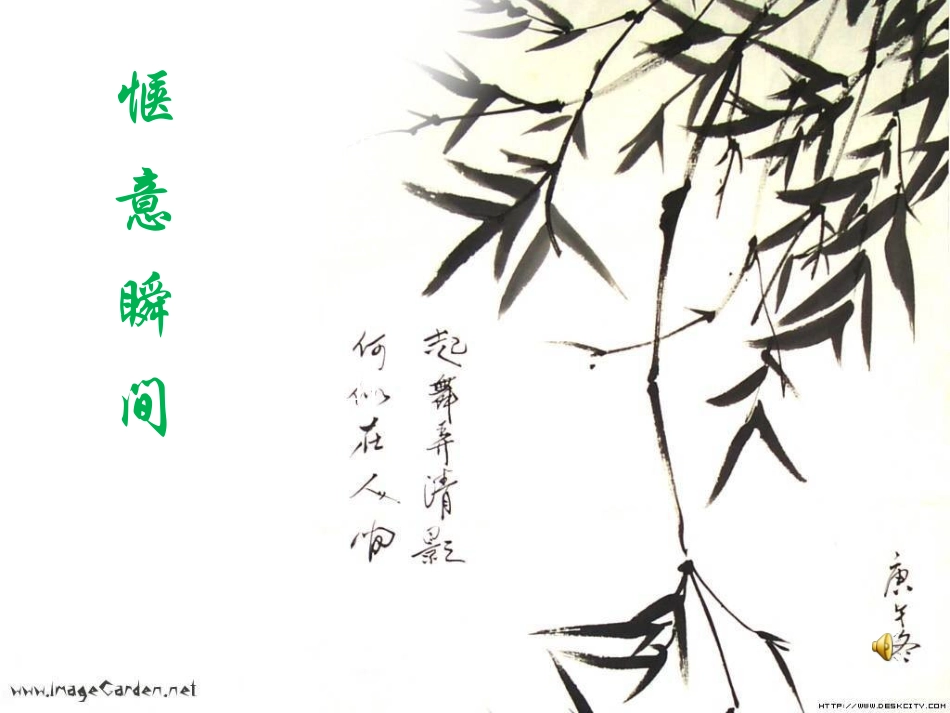 惬意瞬间
起舞弄清影
何似在人间
庚午冬
www.ImageGarden.net
HTTP://WWW.DESKCITY.COM